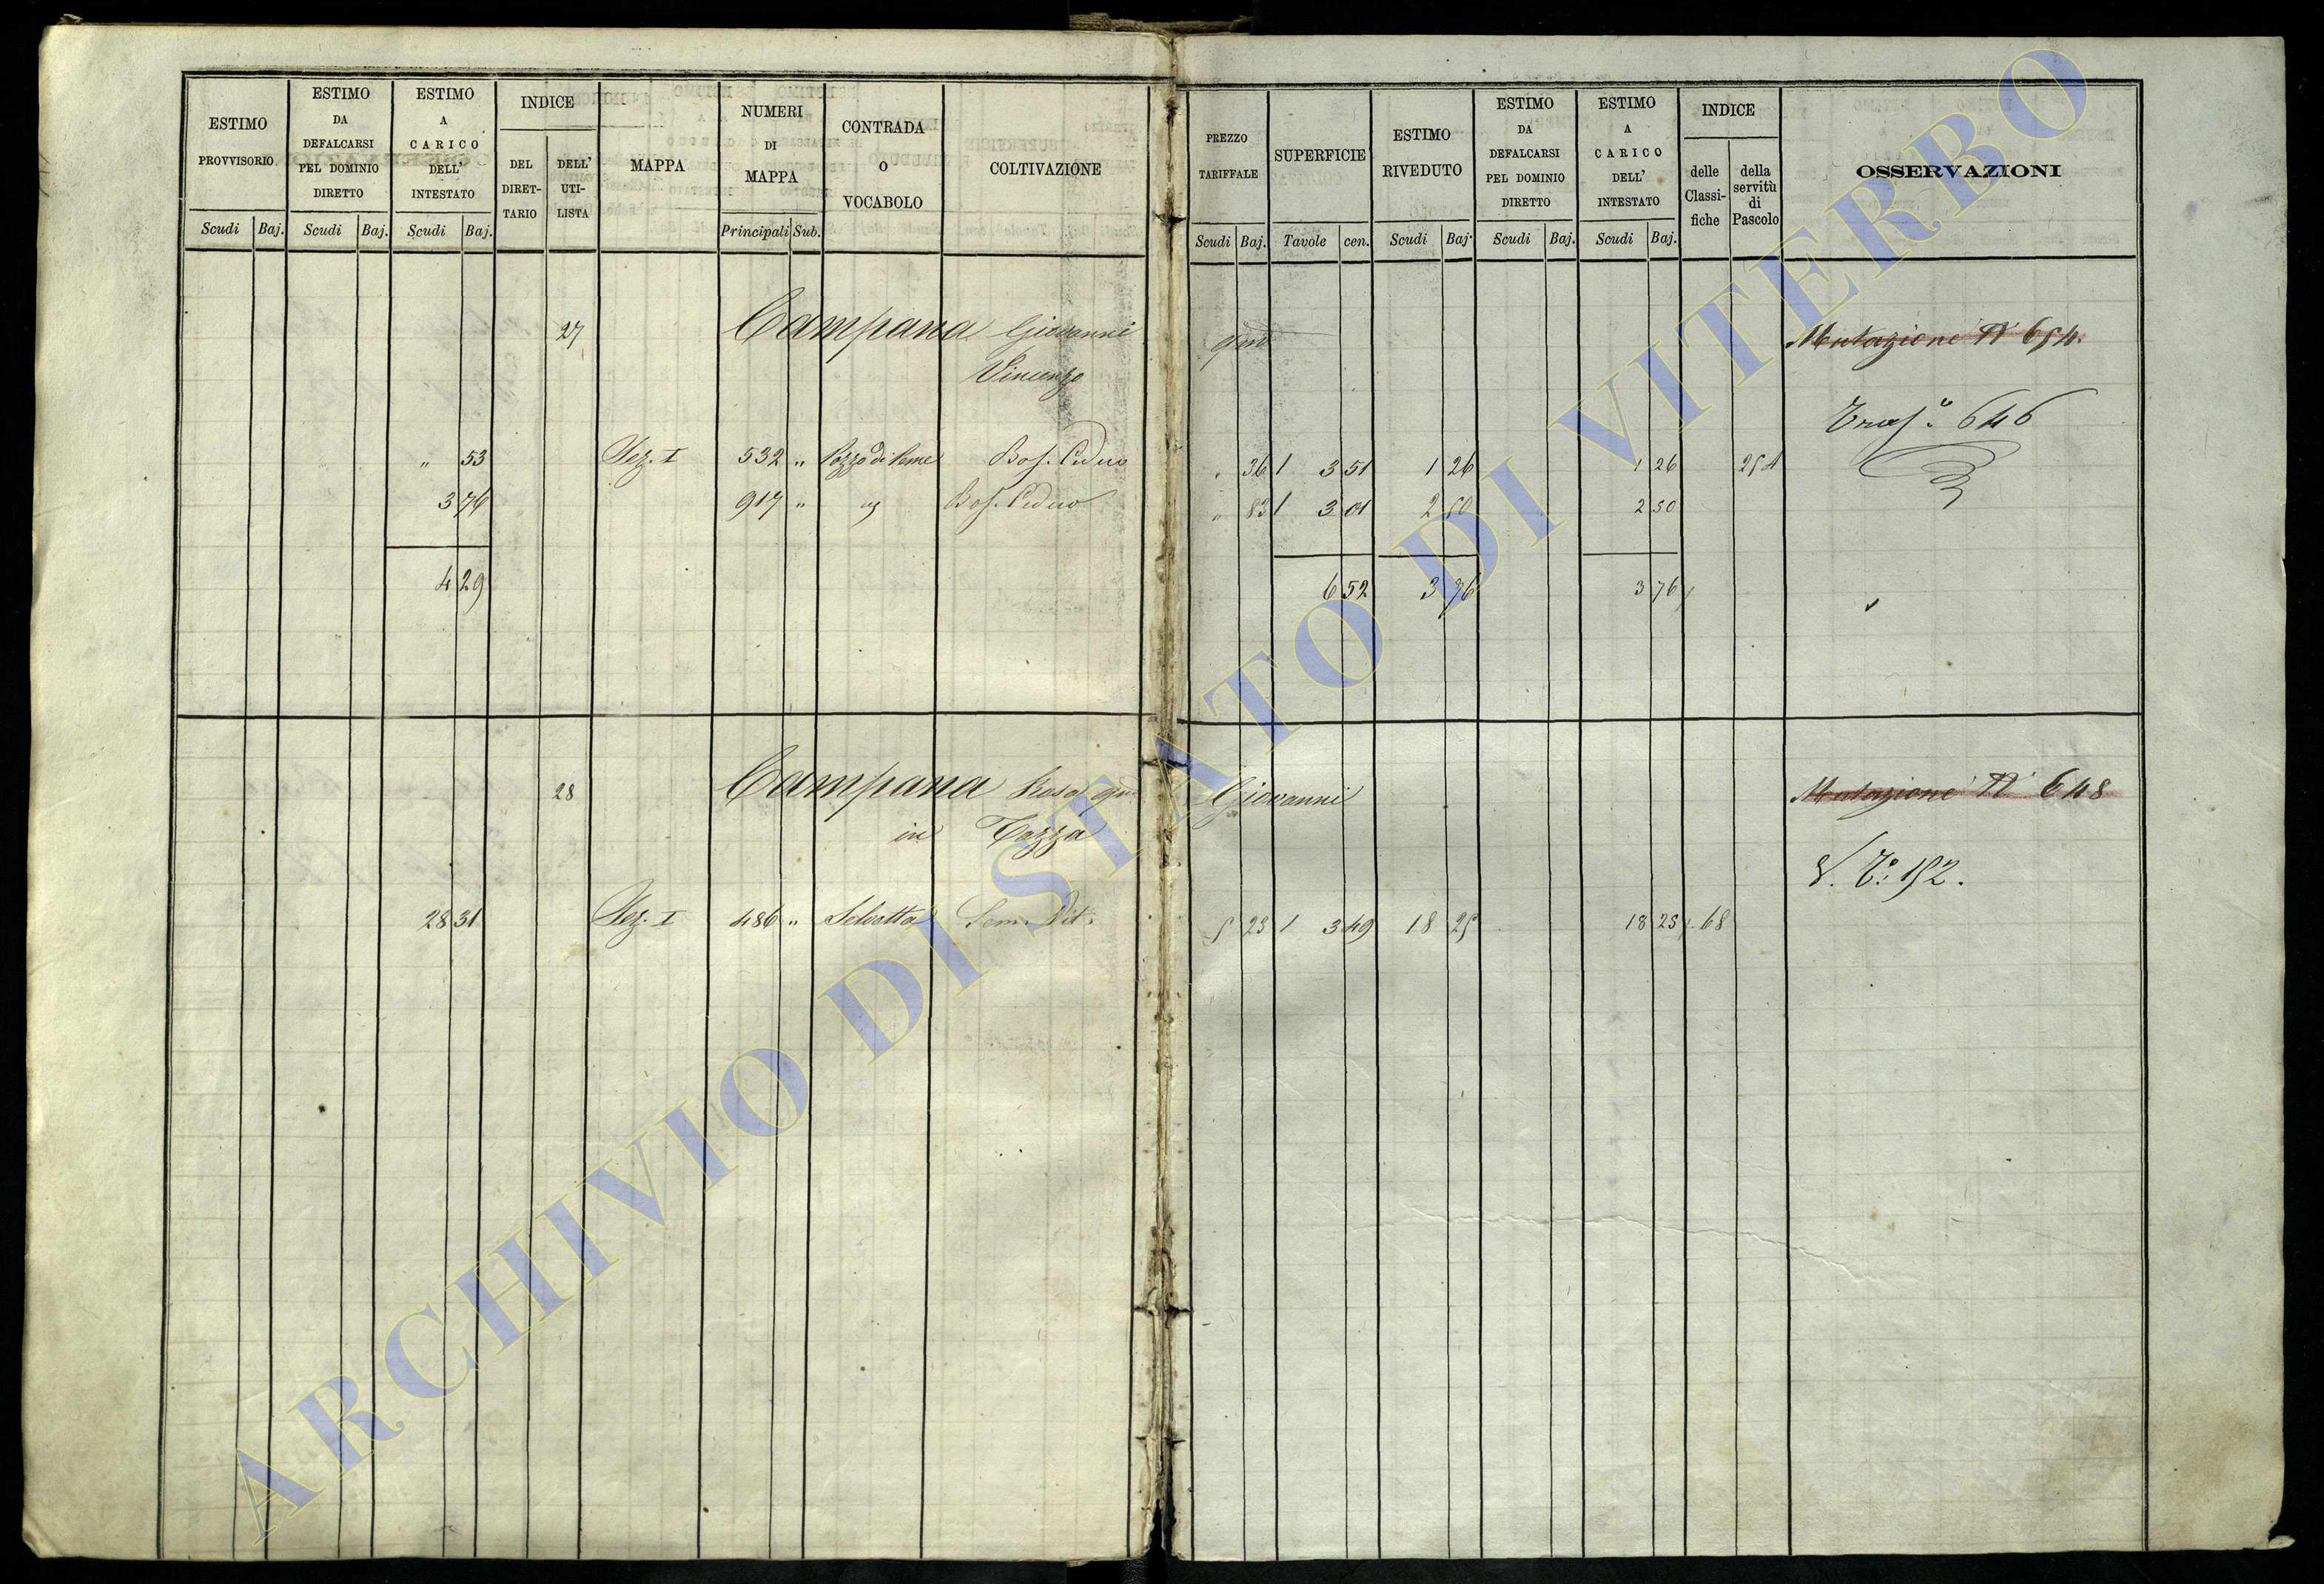 ESTIMO PROVVISORIO
ESTIMO DA DEFALCARSI PEL DOMINIO DIRETTO
ESTIMO A CARICO DELL' INTESTATO
INDICE
DEL DIRET-TARIO
DELL' UTI-LISTA
MAPPA
NUMERI DI MAPPA
CONTRADA O VOCABOLO
COLTIVAZIONE
Scudi Baj. Scudi Baj. Scudi Baj. Principali Sub.
PREZZO TARIFFALE
SUPERFICIE
ESTIMO RIVEDUTO
ESTIMO DA DEFALCARSI PEL DOMINIO DIRETTO
ESTIMO A CARICO DELL' INTESTATO
INDICE
delle Classi-fiche
della servitù di Pascolo
OSSERVAZIONI
Scudi Baj. Tavole cen. Scudi Baj. Scudi Baj. Scudi Baj.
27 Campana Giovanni qm Mutazione N° 654.
Vincenzo
Tras.° 646
" 53 Sez. I 532 " Bos. Ceduo " 36 1 3 51 1 26 1 26 254
3 76 917 " Bos. Ceduo " 83 1 3 01 2 50 2 50
4 29 6 52 3 76 3 76
28 Campana Rosa qm Giovanni Mutazione N° 648
in Tozza
V. T.° 152.
28 31 Sez. I 486 " Selvotta Sem. Vit. 5 23 1 3 49 18 25 18 25 68
ARCHIVIO DI STATO DI VITERBO